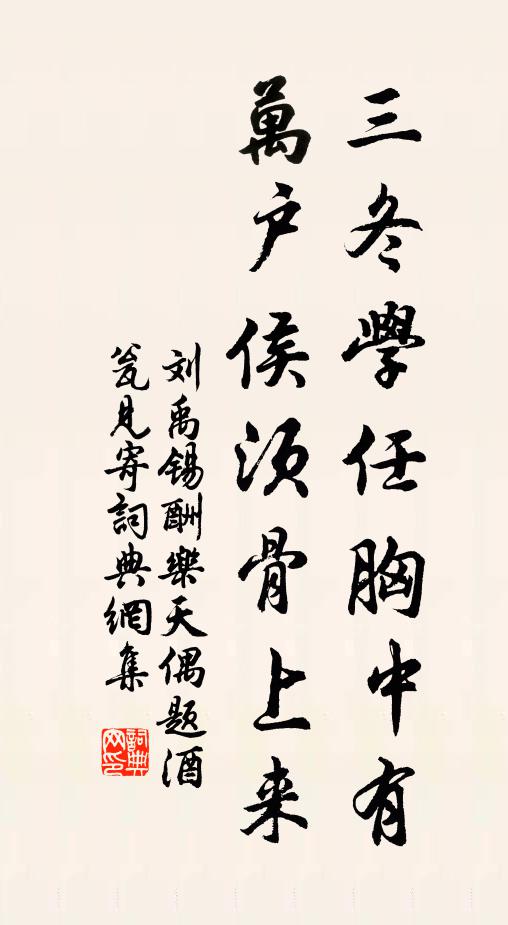 三冬學任胸中有
萬户侯須骨上来
刘禹锡酬樂天偶题酒
瓮見寄詞典網集
詞典
网印